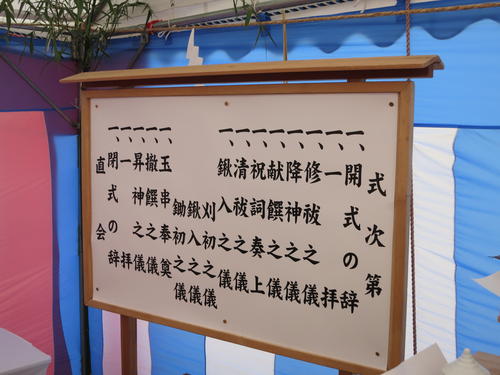 式次第
一、開式の辞
一、一拝
一、修祓之儀
一、降神之儀
一、献饌之儀
一、祝詞奏上
一、清祓之儀
一、鍬入之儀
刈初之儀
鍬入之儀
鋤初之儀
一、玉串奉奠
一、撤饌之儀
一、昇神之儀
一、一拝
一、閉式の辞
直会